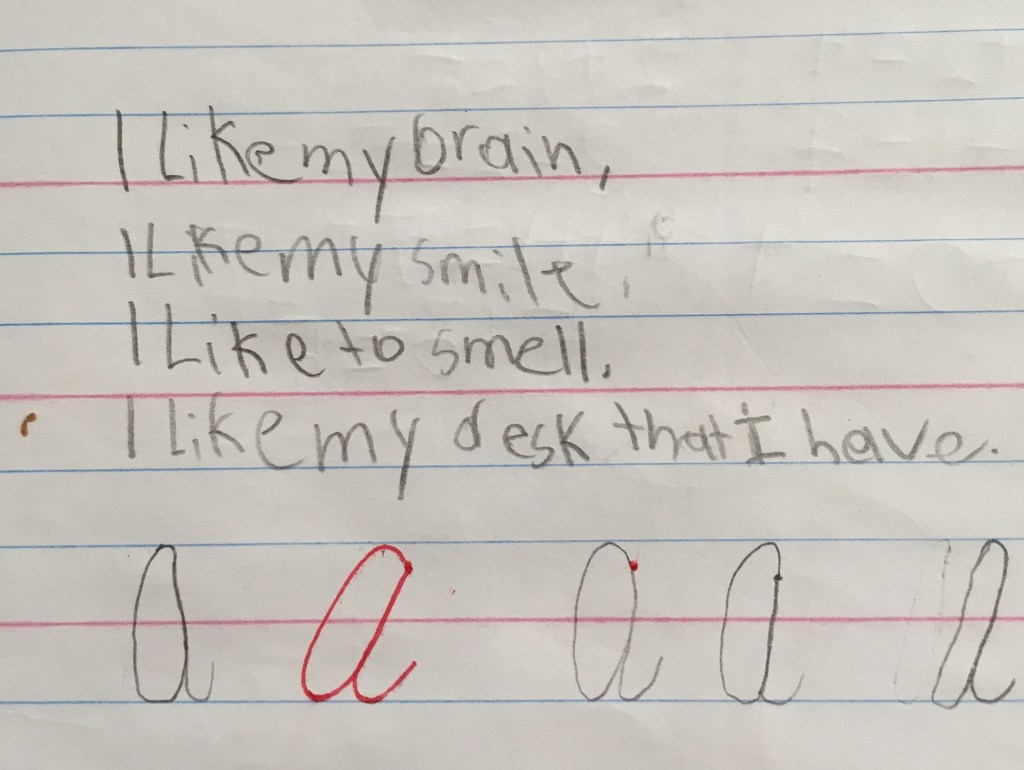 I Like my brain,
I Like my smile.
I Like to smell.
I like my desk that I have.
a a a a a